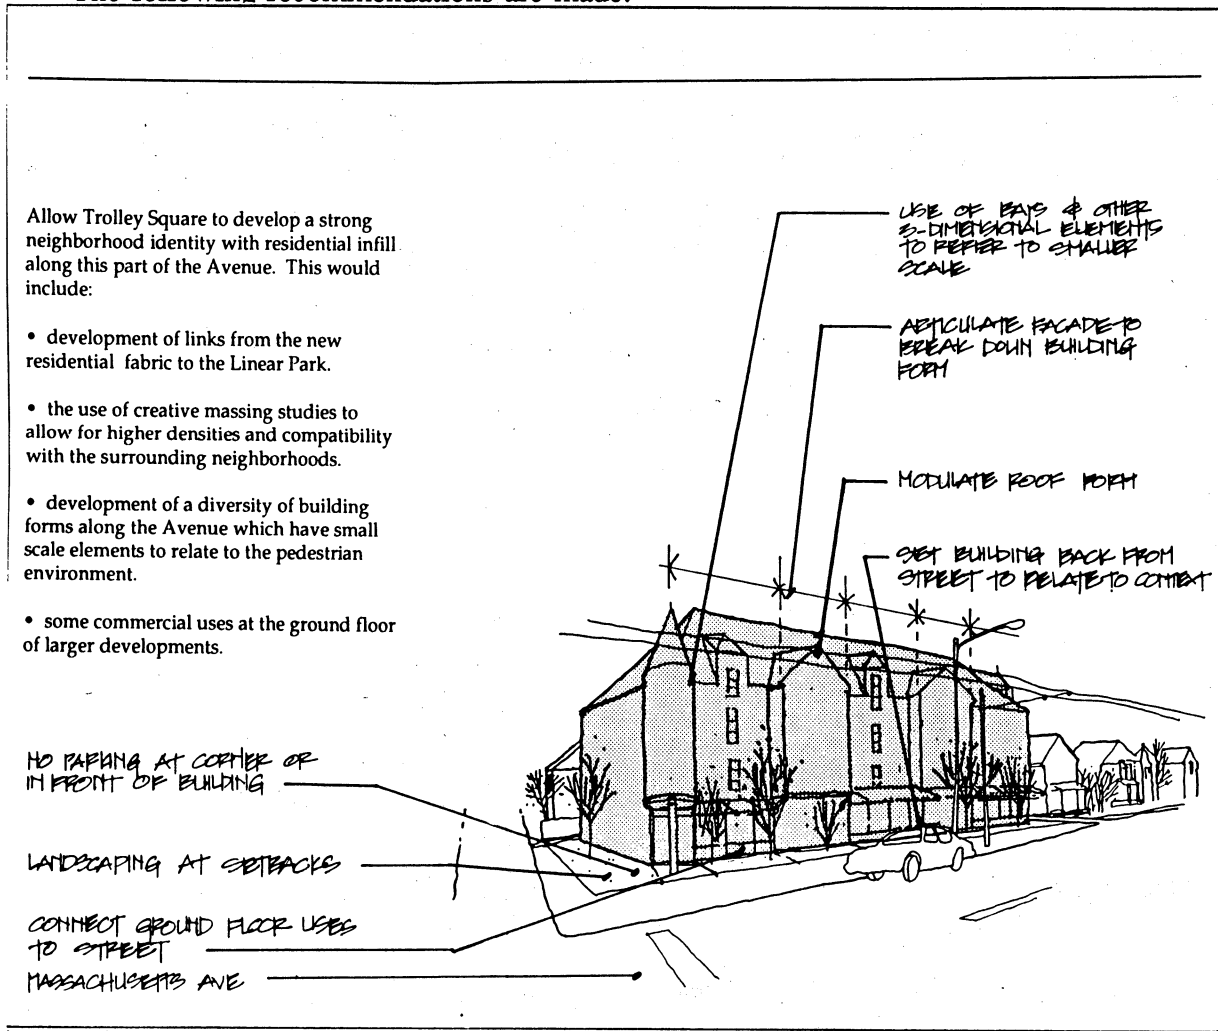 The following recommendations are made:
Allow Trolley Square to develop a strong
neighborhood identity with residential infill
along this part of the Avenue. This would
include:
• development of links from the new
residential fabric to the Linear Park.
• the use of creative massing studies to
allow for higher densities and compatibility
with the surrounding neighborhoods.
• development of a diversity of building
forms along the Avenue which have small
scale elements to relate to the pedestrian
environment.
• some commercial uses at the ground floor
of larger developments.
USE OF BAYS & OTHER
3-DIMENSIONAL ELEMENTS
TO REFER TO SMALLER
SCALE
ARTICULATE FACADE TO
BREAK DOWN BUILDING
FORM
MODULATE ROOF FORM
SET BUILDING BACK FROM
STREET TO RELATE TO CONTEXT
NO PARKING AT CORNER OR
IN FRONT OF BUILDING
LANDSCAPING AT SETBACKS
CONNECT GROUND FLOOR USES
TO STREET
MASSACHUSETTS AVE